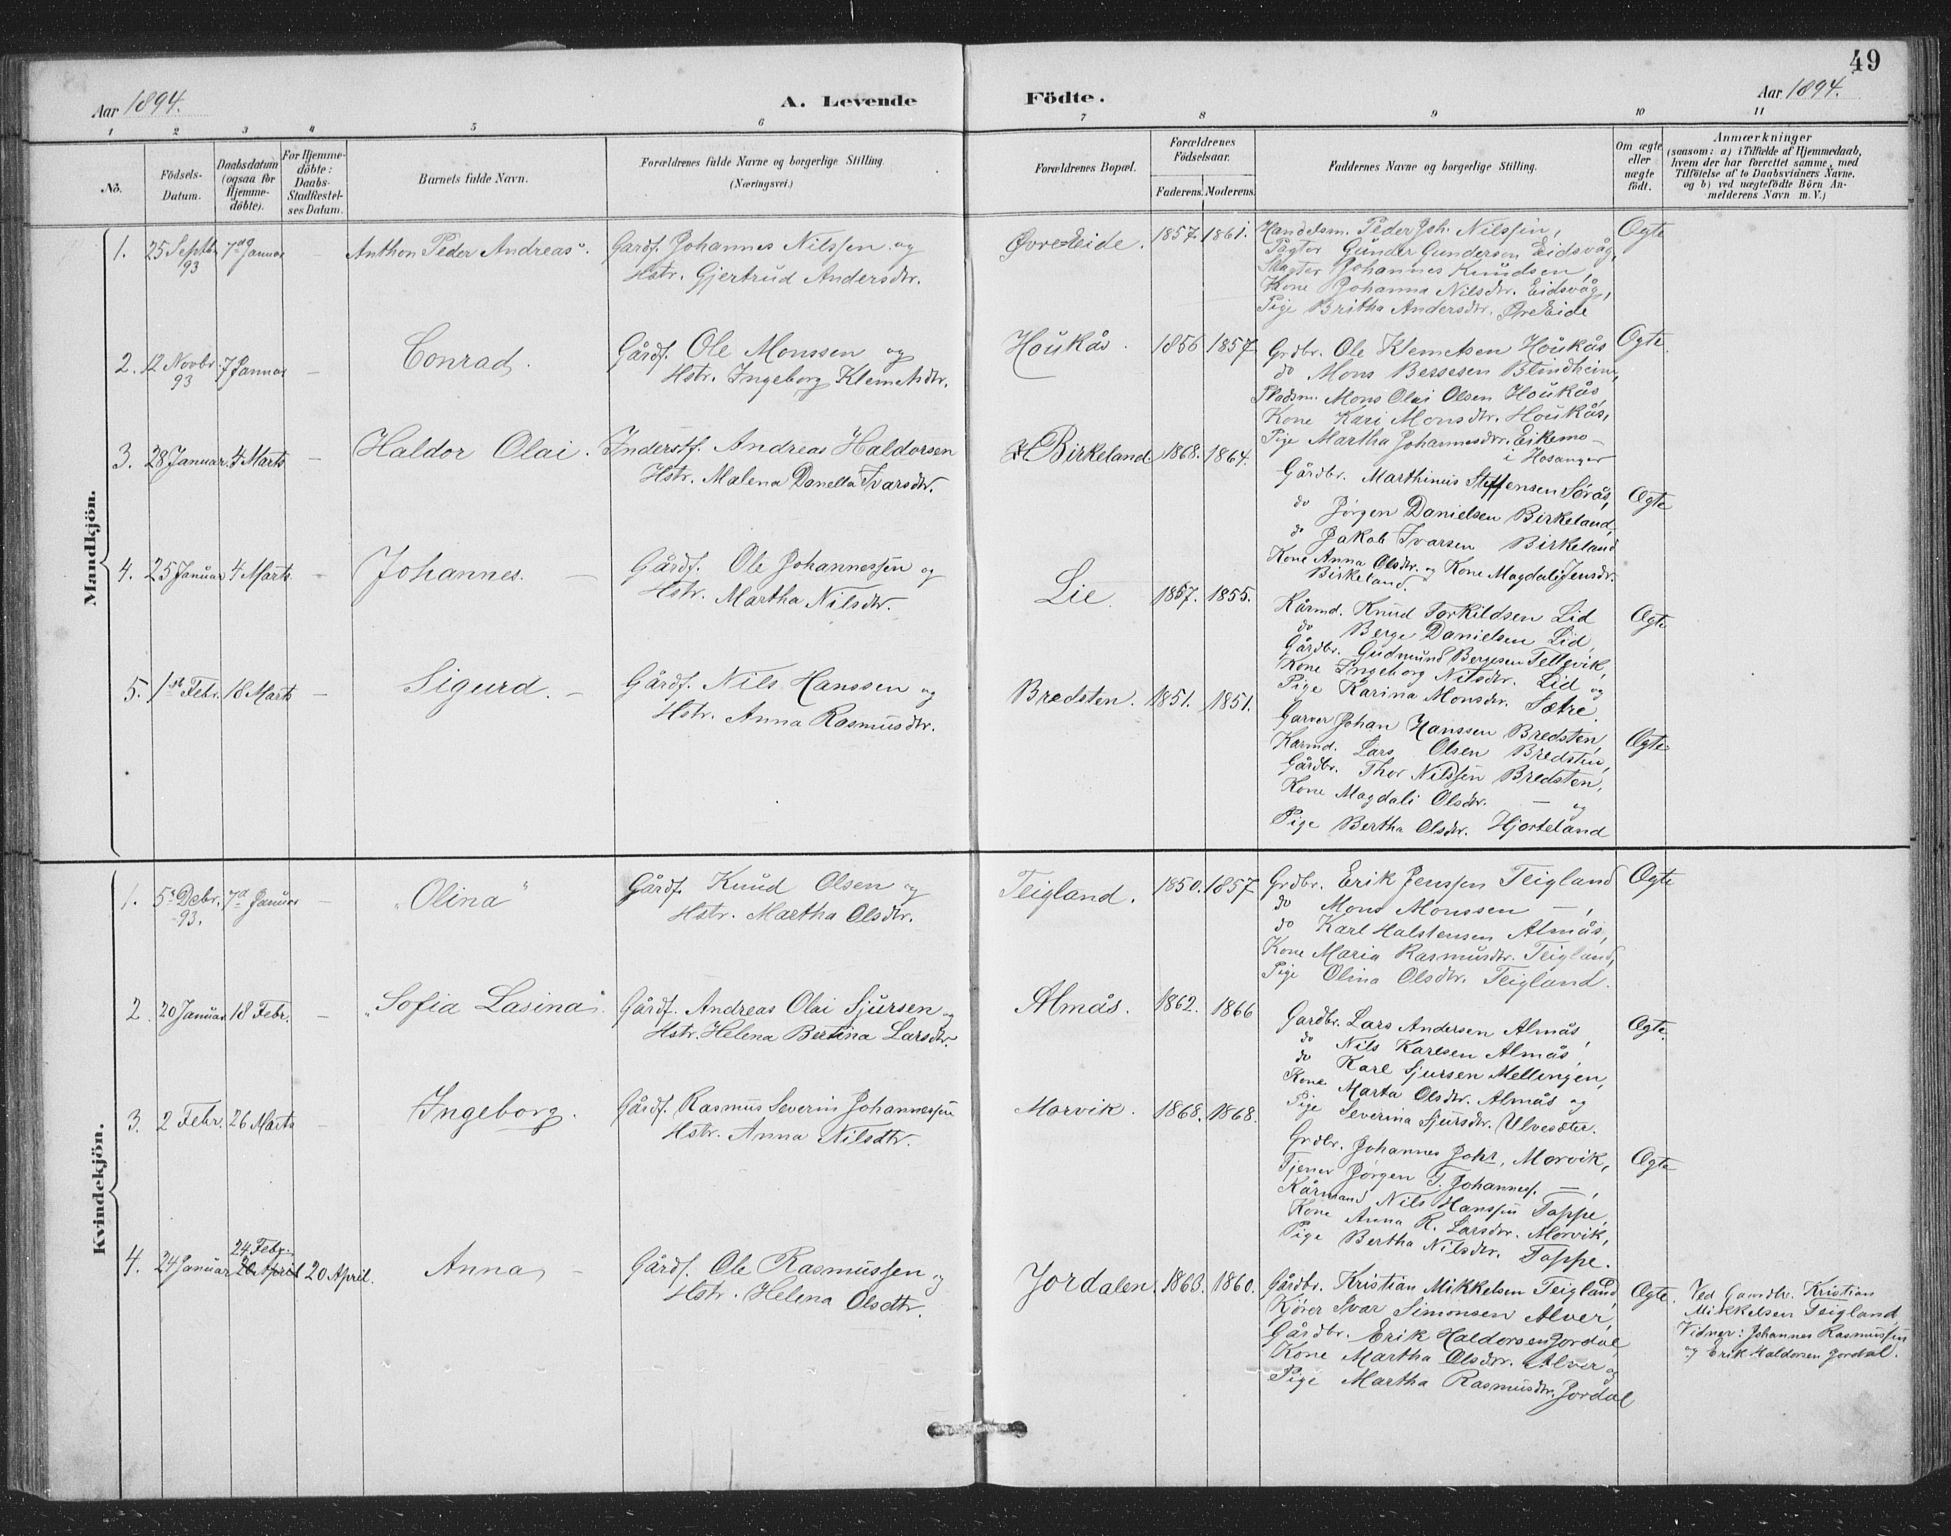 49
Aar 1894.
A. Levende Födte.
Aar 1894.
1 2 3 4 5 6 7 8 9 10 11
No.
Födsels-Datum.
Daabsdatum (ogsaa for Hjemme-döbte).
For Hjemme-döbte: Daabs-Stadfæstel-ses Datum.
Barnets fulde Navn.
Forældrenes fulde Navne og borgerlige Stilling. (Næringsvei.)
Forældrenes Bopæl.
Forældrenes Födselsaar.
Faderens. Moderens.
Faddernes Navne og borgerlige Stilling.
Om ægte eller uægte födt.
Anmærkninger
(saasom: a) i Tilfælde af Hjemmedaab, hvem der har forrettet samme, med Tilföielse af to Daabsvidners Navne. og b) ved uægtefödte Börn An-melderens Navn m. V.)
Mandkjön.
1. 25 Septbr 93 7de Januar – Anthon Peder Andreas.
Gårdf. Johannes Nilssen og
Hstr. Gjertrud Andersdtr.
Øvre Eide. 1857. 1861.
Handelsm. Peder Joh. Nilssen,
Pagter Gunder Gundersen Eidsvåg,
Slagter Johannes Knudsen,
Kone Johanna Nilsdtr. Eidsvåg,
Pige Britha Andersdtr. Øvre Eide
Ægte
2. 12 Novbr. 93 7 Januar – Conrad.
Gårdf. Ole Monssen og
Hstr. Ingeborg Klemetsdtr.
Houkås. 1856 1857
Grdbr. Ole Klemetsen Houkås
do Mons Bersesen Blindheim,
Pladsm. Mons Olai Olsen Houkås,
Kone Kari Monsdtr. Houkås,
Pige Martha Johannesdtr. Eikemo –
i Hosanger
Ægte.
3. 28 Januar. 4 Marts – Haldor Olai.
Inderstf. Andreas Haldorsen
Hstr. Malena Danella Ivarsdtr.
Birkeland. 1868. 1864.
Gårdbr. Marthinus Steffensen Sørås,
do Jørgen Danielsen Birkeland,
do Jakob Ivarsen Birkeland
Kone Anna Olsdtr. og Kone Magdali Jensdr.
Birkeland.
Ægte
4. 25 Januar 4 Marts. – Johannes. –
Gårdf. Ole Johannessen og
Hstr. Martha Nilsdtr.
Lie. 1857. 1855.
Kårmd. Knud Torkildsen Lid
do Berge Danielsen Lid,
Gårdbr. Gudmund Bergesen Tellevik,
Kone Ingeborg Nilsdtr. Lid og
Pige Karina Monsdtr. Sætre.
Ægte
5. 1ste Febr. 18 Marts – Sigurd. –
Gårdf. Nils Hanssen og
Hstr. Anna Rasmusdtr.
Bredsten. 1851. 1851.
Garver Johan Hanssen Bredsten,
Kårmd. Lars Olsen Bredsten,
Gårdbr. Thor Nilssen Bredsten,
Kone Magdali Olsdtr. — og
Pige Bertha Olsdtr. Hjorteland
Ægte
Kvindekjön.
1. 5te Debr. 93. 7de Januar – „Olina"
Gårdf. Knud Olsen og
Hstr. Martha Olsdtr.
Teigland. 1850. 1857.
Grdbr. Erik Jenssen Teigland
do Mons Monssen —,
do Karl Halstensen Almås,
Kone Maria Rasmusdtr. Teigland,
Pige Olina Olsdtr. Teigland.
Ægte
2. 20 Januar. 18 Febr. – „Sofia Lasina".
Gårdf. Andreas Olai Sjursen og
Hstr. Helena Bertina Larsdtr.
Almås. 1862. 1866
Gardbr. Lars Andersen Almås,
do Nils Karlsen Almås,
do Karl Sjursen Mellingen,
Kone Marta Olsdtr. Almås og
Pige Severina Sjursdtr. Ulvesæter.
Ægte.
3. 2 Febr. 26 Marts – Ingeborg.
Gårdf. Rasmus Severin Johannessen
Hstr. Anna Nilsdtr.
Morvik. 1868. 1868.
Grdbr. Johannes Johs, Morvik,
Tjener Jørgen T. Johannes. —,
Kårmand Nils Hanssen Toppe,
Kone Anna R. Larsdtr. Morvik,
Pige Bertha Nilsdtr. Toppe.
Ægte
4. 24 Januar 24 Febr. 20 April 20 April. Anna –
Gårdf. Ole Rasmussen og
Hstr. Helena Olsdtr.
Jordalen. 1863. 1860.
Gårdbr. Kristian Mikkelsen Teigland,
Kjører Ivar Simonsen Alver,
Gårdbr. Erik Haldorsen Jordal
Kone Martha Olsdtr. Alver og
Pige Martha Rasmusdtr. Jordal
Ægte.
Ved Gaardbr. Kristian
Mikkelsen Teigland
Vidner: Johannes Rasmussen
og Erik Haldorsen Jordal.